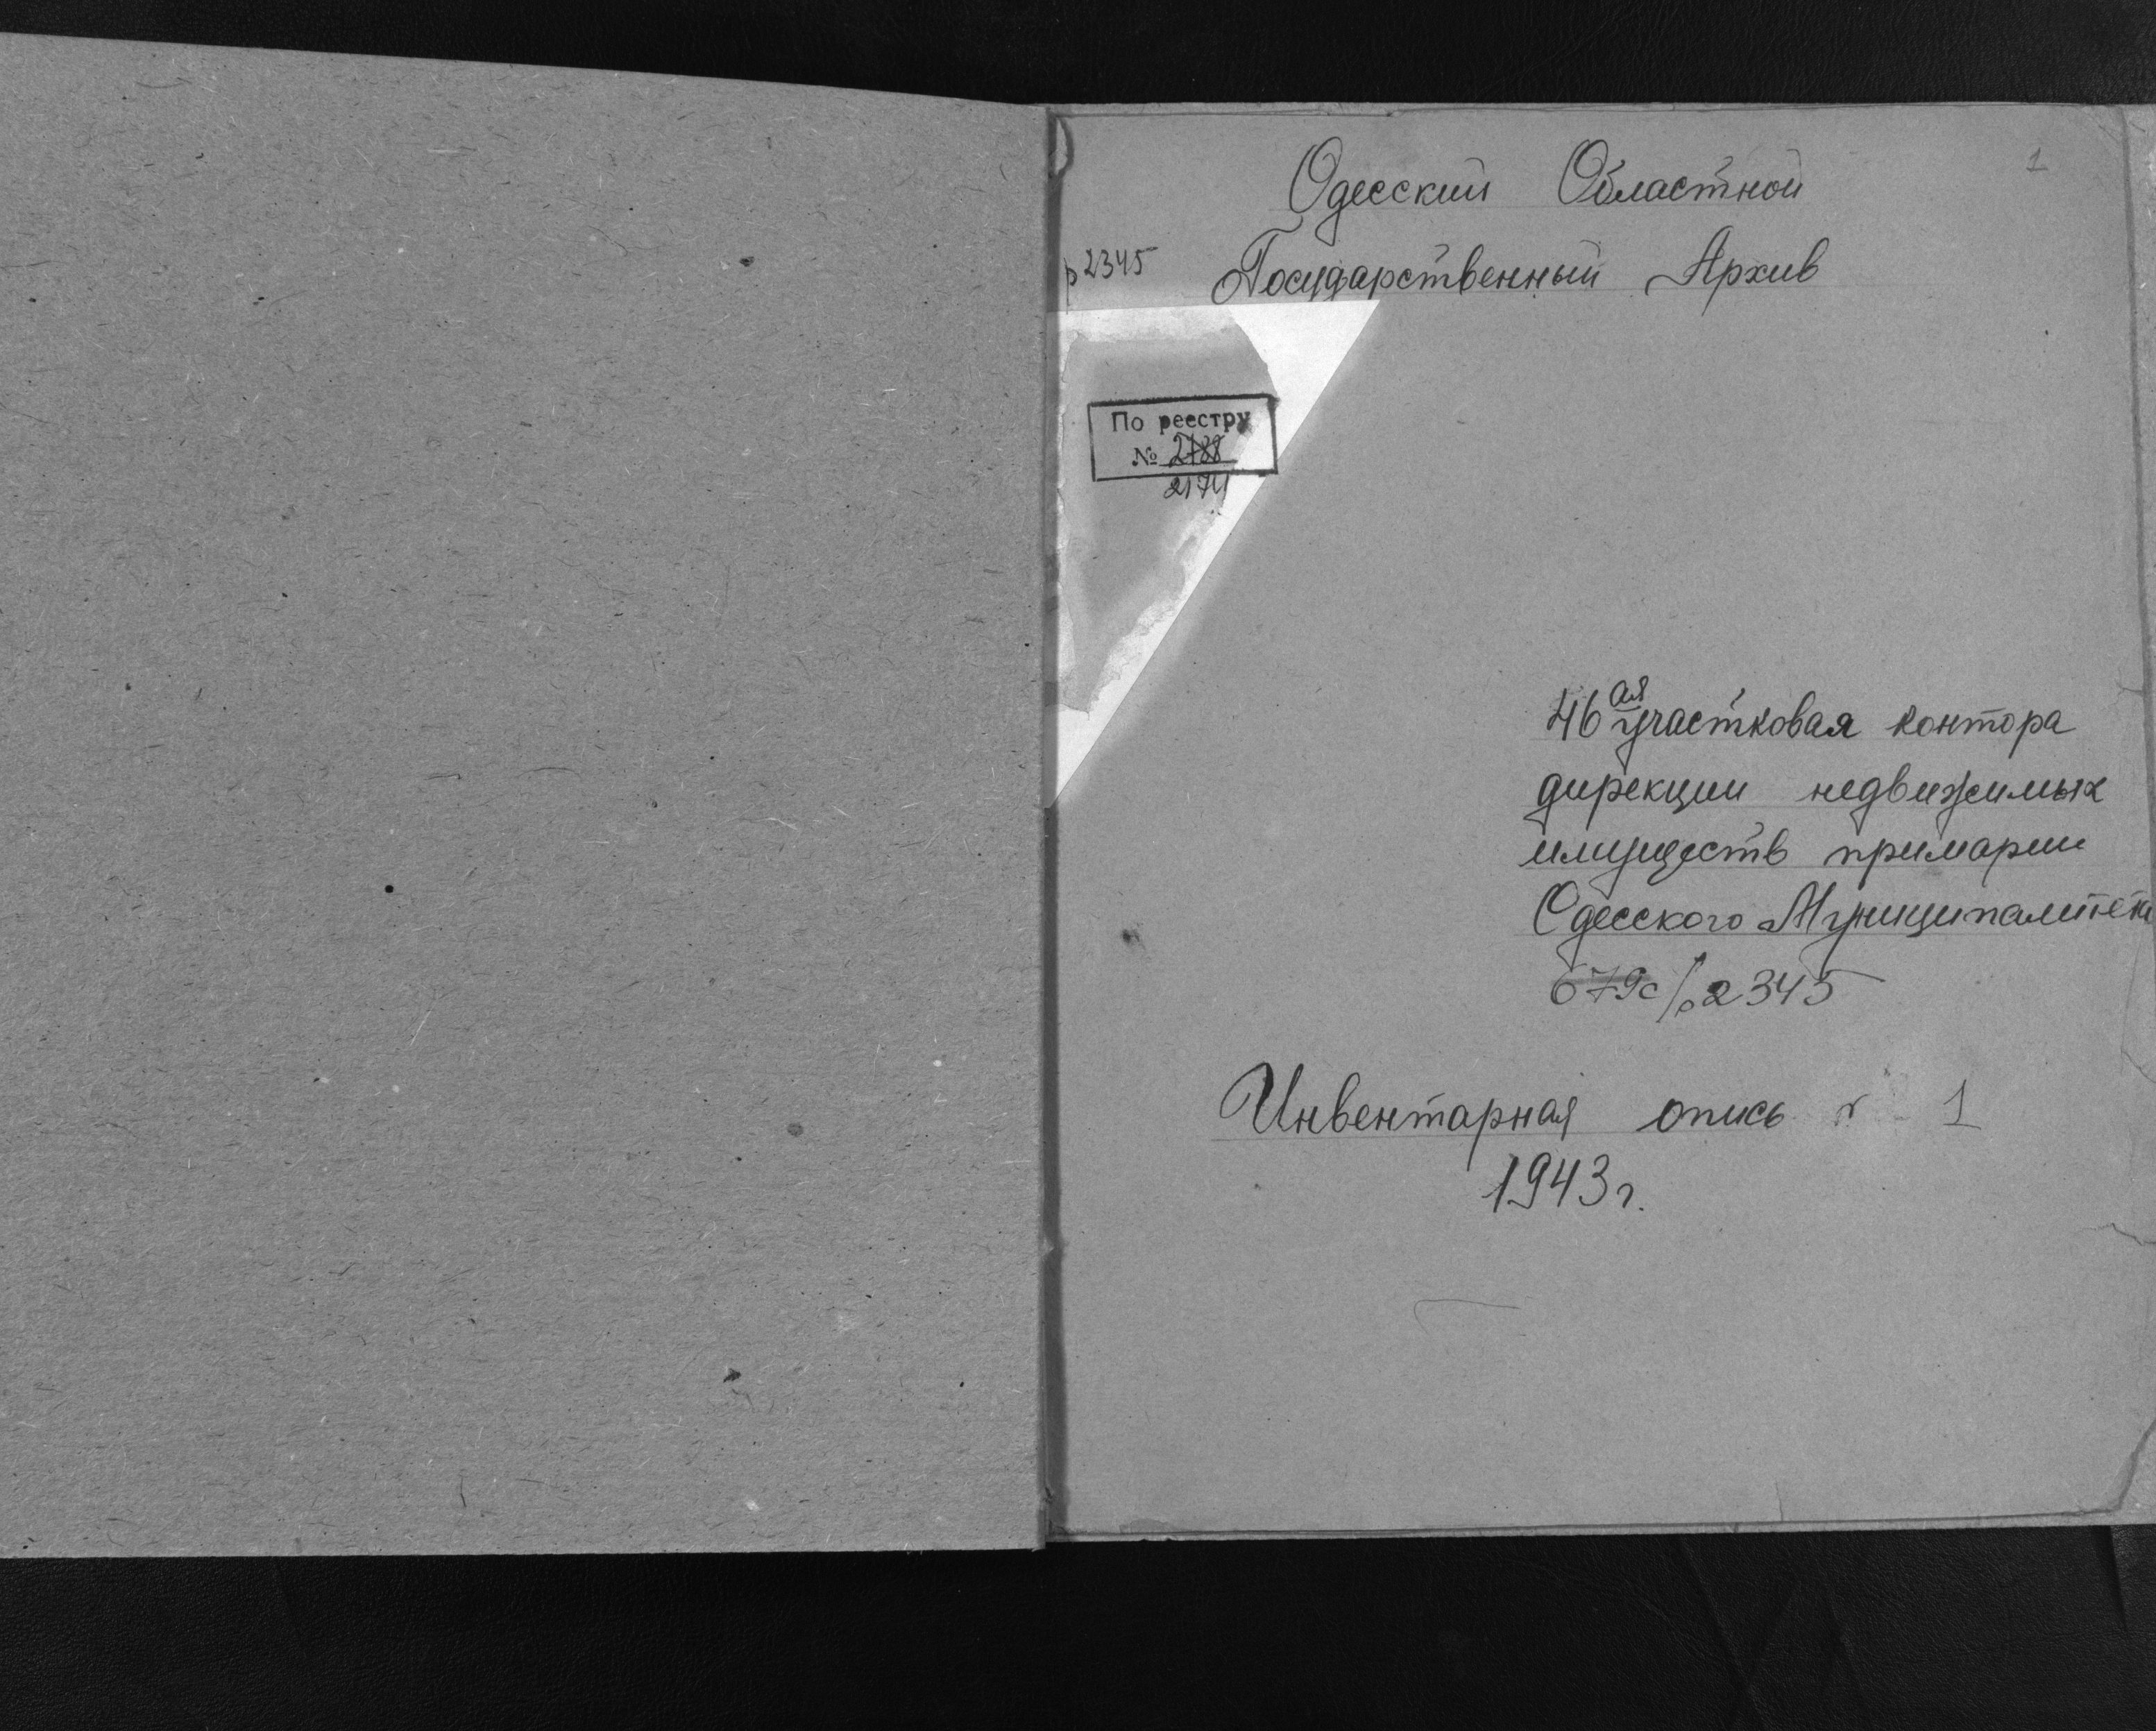 1
Одесский Областной
р2345
Государственный Архив
По реестру
№ 2788
2174
46ая участковая контора
дирекции недвижимых
имуществ примарии
Одесского Муниципалитета
679с/р2345
Инвентарная опись № 1
1943 г.